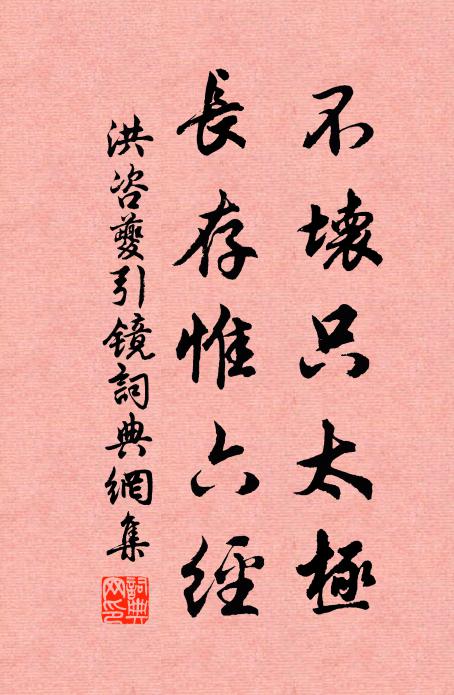 不壞只太極
長存惟六經
洪咨夔引鏡詞典網集
詞典
網印